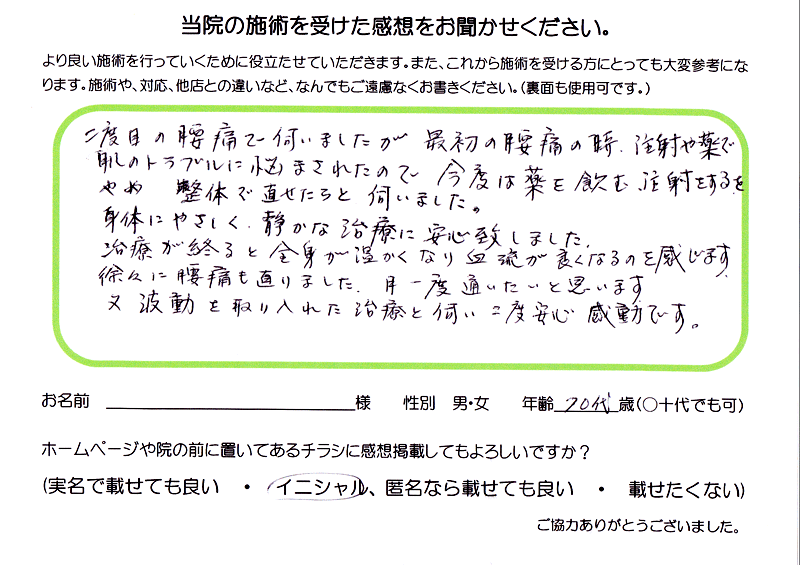 当院の施術を受けた感想をお聞かせください。
より良い施術を行っていくために役立たせていただきます。また、これから施術を受ける方にとっても大変参考にな
ります。施術や、対応、他店との違いなど、なんでもご遠慮なくお書きください。(裏面も使用可です。)
二度目の腰痛で伺いましたが 最初の腰痛の時、注射や薬で
肌のトラブルに悩まされたので 今度は薬を飲む、注射をするを
やめ 整体で直せたらと 伺いました。
身体にやさしく、静かな治療に安心致しました。
治療が終ると全身が温かくなり血流が良くなるのを感じます
徐々に腰痛も直りました。月一度通いたいと思います
又 波動を取り入れた治療と伺い 二度安心 感動です。
お名前 様 性別 男・女 年齢 70代 歳(○十代でも可)
ホームページや院の前に置いてあるチラシに感想掲載してもよろしいですか？
(実名で載せても良い ・ イニシャル、匿名なら載せても良い ・ 載せたくない)
ご協力ありがとうございました。